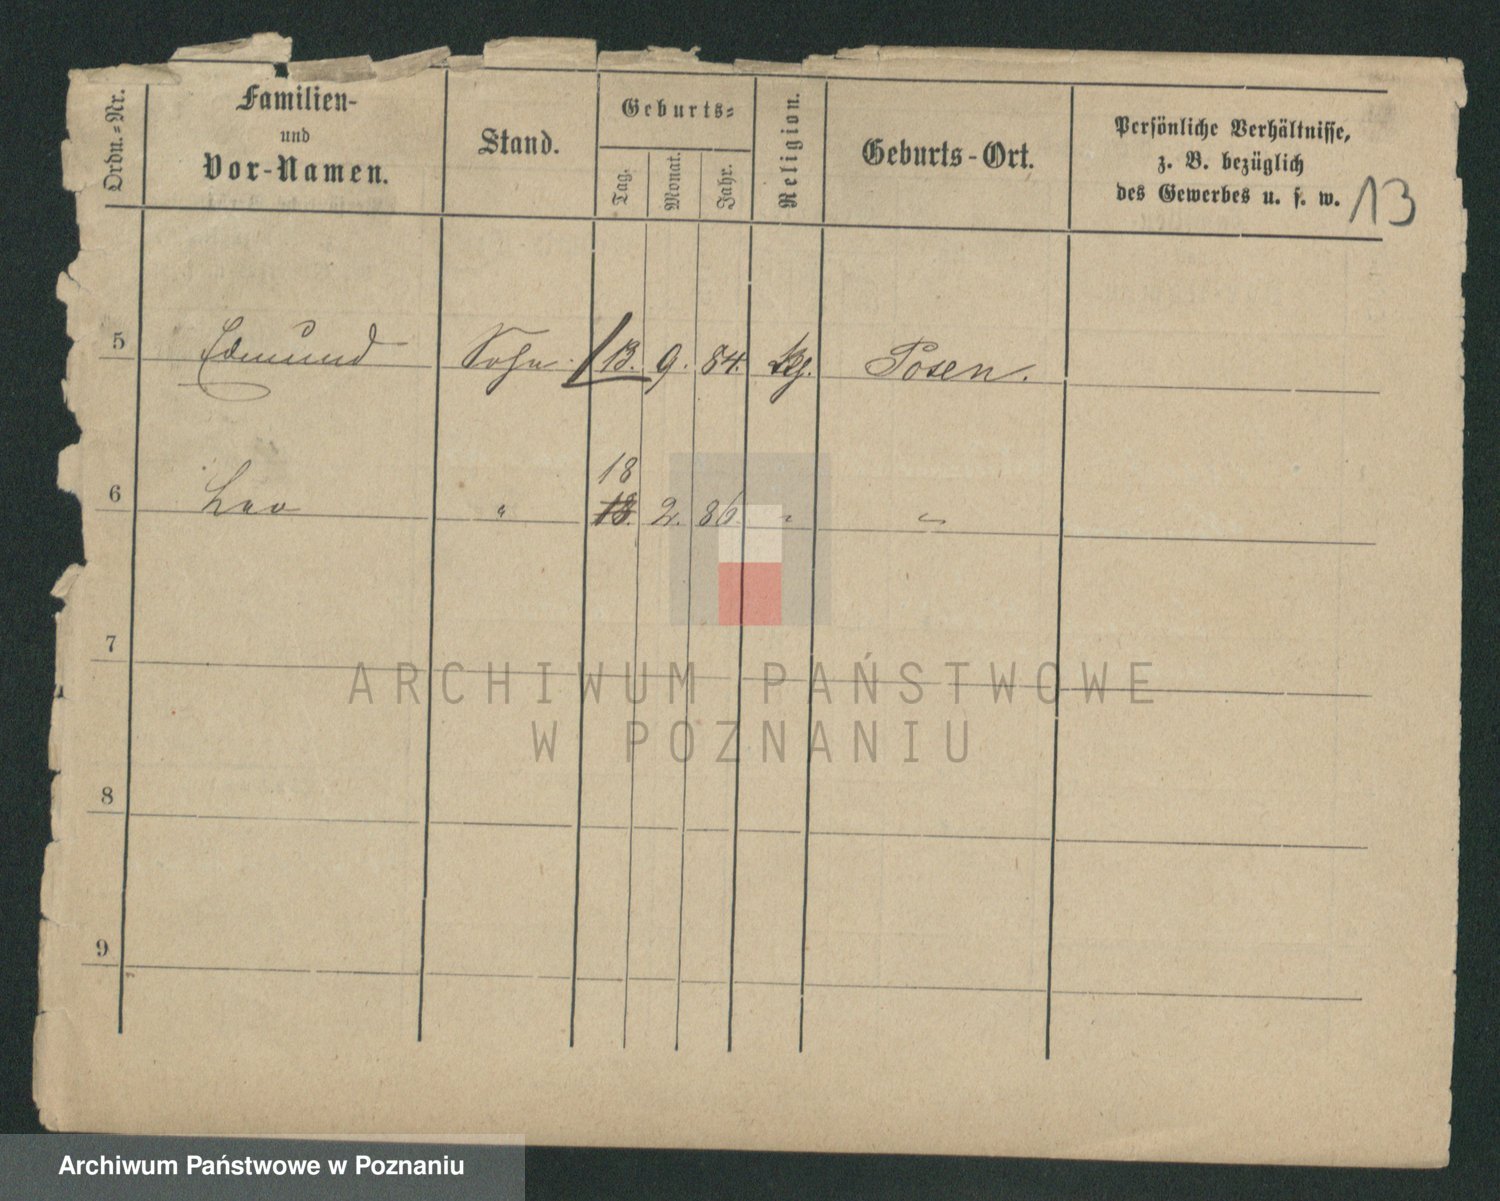 Ordn.-Nr.
Familien-
und
Vor-Namen.
Stand.
Geburts-
Tag.
Monat.
Jahr.
Religion.
Geburts-Ort.
Persönliche Verhältnisse,
z. B. bezüglich
des Gewerbes u. s. w.
13
5 Edmund Sohn 13. 9. 84. Posen.
18
6 Leo " 18. 2. 86. " "
7
8
9
ARCHIWUM PAŃSTWOWE
W POZNANIU
Archiwum Państwowe w Poznaniu